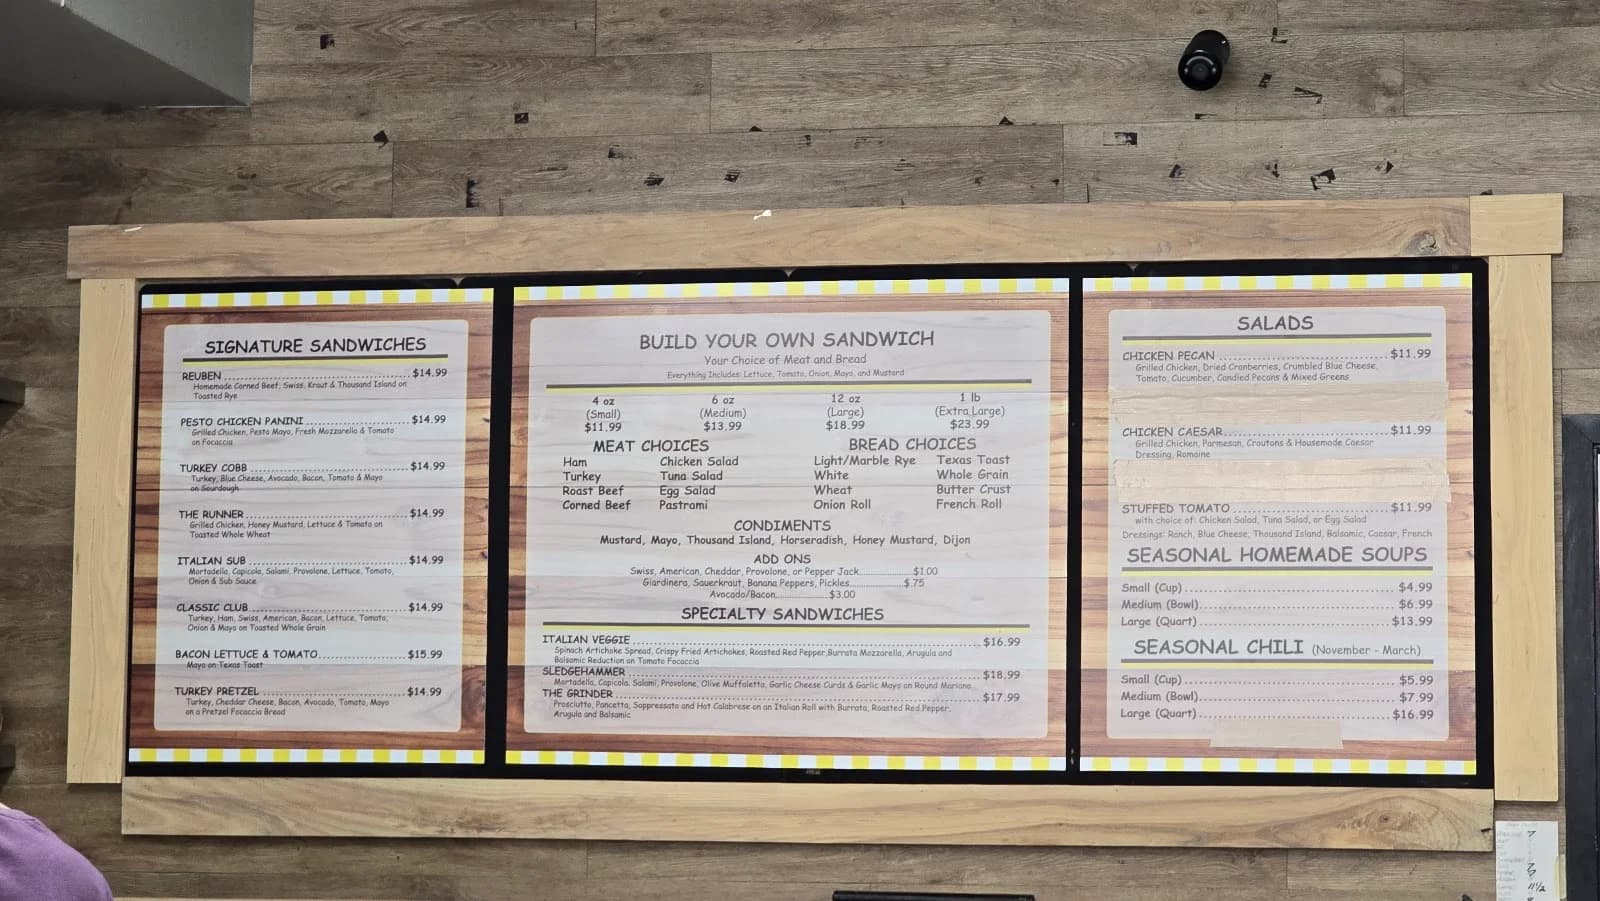 SIGNATURE SANDWICHES
REUBEN ........ $14.99
Homemade Corned Beef, Swiss, Kraut & Thousand Island on
Toasted Rye
PESTO CHICKEN PANINI ........ $14.99
Grilled Chicken, Pesto Mayo, Fresh Mozzarella & Tomato
on Focaccia
TURKEY COBB ........ $14.99
Turkey, Blue Cheese, Avocado, Bacon, Tomato & Mayo
on Sourdough
THE RUNNER ........ $14.99
Grilled Chicken, Honey Mustard, Lettuce & Tomato on
Toasted Whole Wheat
ITALIAN SUB ........ $14.99
Mortadella, Capicola, Salami, Provolone, Lettuce, Tomato,
Onion & Sub Sauce
CLASSIC CLUB ........ $14.99
Turkey, Ham, Swiss, American, Bacon, Lettuce, Tomato,
Onion & Mayo on Toasted Whole Grain
BACON LETTUCE & TOMATO ........ $15.99
Mayo on Texas Toast
TURKEY PRETZEL ........ $14.99
Turkey, Cheddar Cheese, Bacon, Avocado, Tomato, Mayo
on a Pretzel Focaccia Bread
BUILD YOUR OWN SANDWICH
Your Choice of Meat and Bread
Everything Includes: Lettuce, Tomato, Onion, Mayo, and Mustard
4 oz 6 oz 12 oz 1 lb
(Small) (Medium) (Large) (Extra Large)
$11.99 $13.99 $18.99 $23.99
MEAT CHOICES BREAD CHOICES
Ham Chicken Salad Light/Marble Rye Texas Toast
Turkey Tuna Salad White Whole Grain
Roast Beef Egg Salad Wheat Butter Crust
Corned Beef Pastrami Onion Roll French Roll
CONDIMENTS
Mustard, Mayo, Thousand Island, Horseradish, Honey Mustard, Dijon
ADD ONS
Swiss, American, Cheddar, Provolone, or Pepper Jack ........ $1.00
Giardinera, Sauerkraut, Banana Peppers, Pickles ........ $.75
Avocado/Bacon ........ $3.00
SPECIALTY SANDWICHES
ITALIAN VEGGIE ........ $16.99
Spinach Artichoke Spread, Crispy Fried Artichokes, Roasted Red Pepper,Burrata Mozzarella, Arugula and
Balsamic Reduction on Tomato Focaccia
SLEDGEHAMMER ........ $18.99
Mortadella, Capicola, Salami, Provolone, Olive Muffaletta, Garlic Cheese Curds & Garlic Mayo on Round Mariano
THE GRINDER ........ $17.99
Prosciutto, Pancetta, Soppressato and Hot Calabrese on an Italian Roll with Burrata, Roasted Red Pepper,
Arugula and Balsamic
SALADS
CHICKEN PECAN ........ $11.99
Grilled Chicken, Dried Cranberries, Crumbled Blue Cheese,
Tomato, Cucumber, Candied Pecans & Mixed Greens
CHICKEN CAESAR ........ $11.99
Grilled Chicken, Parmesan, Croutons & Housemade Caesar
Dressing, Romaine
STUFFED TOMATO ........ $11.99
with choice of: Chicken Salad, Tuna Salad, or Egg Salad
Dressings: Ranch, Blue Cheese, Thousand Island, Balsamic, Caesar, French
SEASONAL HOMEMADE SOUPS
Small (Cup) ........ $4.99
Medium (Bowl) ........ $6.99
Large (Quart) ........ $13.99
SEASONAL CHILI (November - March)
Small (Cup) ........ $5.99
Medium (Bowl) ........ $7.99
Large (Quart) ........ $16.99
7
11½